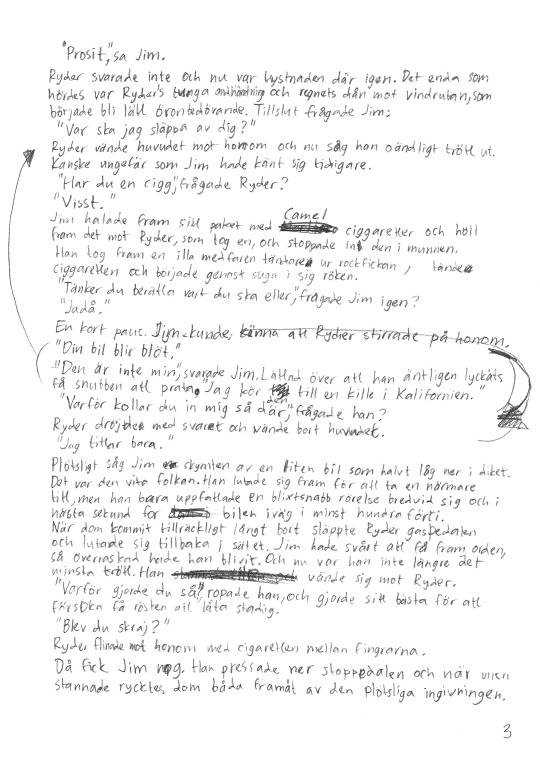 "Prosit," sa Jim.
Ryder svarade inte och nu var tystnaden där igen. Det enda som
hördes var Ryder's tunga andhämtning och regnets dån mot vindrutan, som
började bli lätt öronbedövande. Tillslut frågade Jim:
"Var ska jag släppa av dig?"
Ryder vände huvudet mot honom och nu såg han oändligt trött ut.
Kanske ungefär som Jim hade känt sig tidigare.
"Har du en cigg," frågade Ryder?
"Visst."
Jim halade fram sitt paket med Camel ciggaretter och höll
fram det mot Ryder, som tog en, och stoppade in den i munnen.
Han tog fram en illa medfaren tändare ur rockfickan, tände
ciggaretten och började genast suga i sig röken.
"Tänker du berätta vart du ska eller," frågade Jim igen?
"Jadå."
En kort paus. Jim kunde känna att Ryder stirrade på honom.
"Din bil blir blöt."
"Den är inte min", svarade Jim. Lättad över att han äntligen lyckats
få snubben att prata. "Jag kör till en kille i Kalifornien."
"Varför kollar du in mig så där," frågade han?
Ryder dröjde med svaret och vände bort huvudet.
"Jag tittar bara."
Plötsligt såg Jim skymten av en liten bil som halvt låg ner i diket.
Det var den vita folkan. Han lutade sig fram för att ta en närmare
titt, men han bara uppfattade en blixtsnabb rörelse bredvid sig och i
nästa sekund for bilen iväg i minst hundra förti.
När dom kommit tillräckligt långt bort släppte Ryder gaspedalen
och lutade sig tillbaka i sätet. Jim hade svårt att få fram orden,
så överraskad hade han blivit. Och nu var han inte längre det
minsta trött. Han vände sig mot Ryder.
"Varför gjorde du så?" ropade han, och gjorde sitt bästa för att
försöka få rösten att låta stadig.
"Blev du skraj?"
Ryder flinade mot honom med cigaretten mellan fingrarna.
Då fick Jim nog. Han pressade ner stoppedalen och när
stannade rycktes dom båda framåt av den plötsliga ingivningen.
3